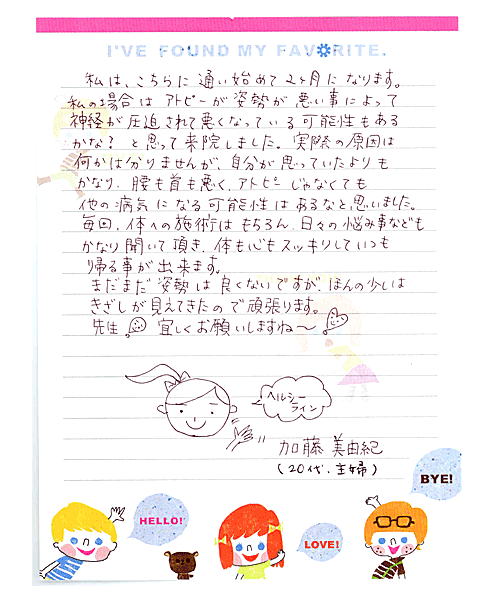 I'VE FOUND MY FAVORITE.
私は、こちらに通い始めて2ヶ月になります。
私の場合はアトピーが姿勢が悪い事によって
神経が圧迫されて悪くなっている可能性もある
かな？と思って来院しました。実際の原因は
何かは分りませんが、自分が思っていたよりも
かなり、腰も首も悪く、アトピーじゃなくても
他の病気になる可能性はあるなと思いました。
毎回、体への施術はもちろん、日々の悩み事なども
かなり聞いて頂き、体も心もスッキリしていつも
帰る事が出来ます。
まだまだ姿勢は良くないですが、ほんの少しは
きざしが見えてきたので頑張ります。
先生 宜しくお願いしますね〜
ヘルシー
ライン
加藤 美由紀
(20代、主婦)
BYE!
HELLO!
LOVE!